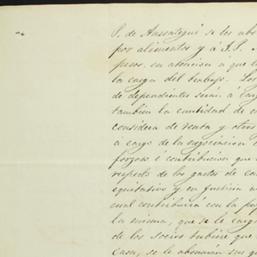 P. de Ansoategui se les abo
por alimentos y á J. P.
pesos, en atencion á que
la carga del trabajo. Los
de dependientes serán á car
tambien la cantidad de
considera de renta y otros
á cargo de la negociacion
forzoso é contribucion que
respecto de los gastos de ca
equitativo y en justicia
cual contribuirá con la pa
la misma, que se le carga
de los socios tubiere que
Caso, se le abonarán sus g